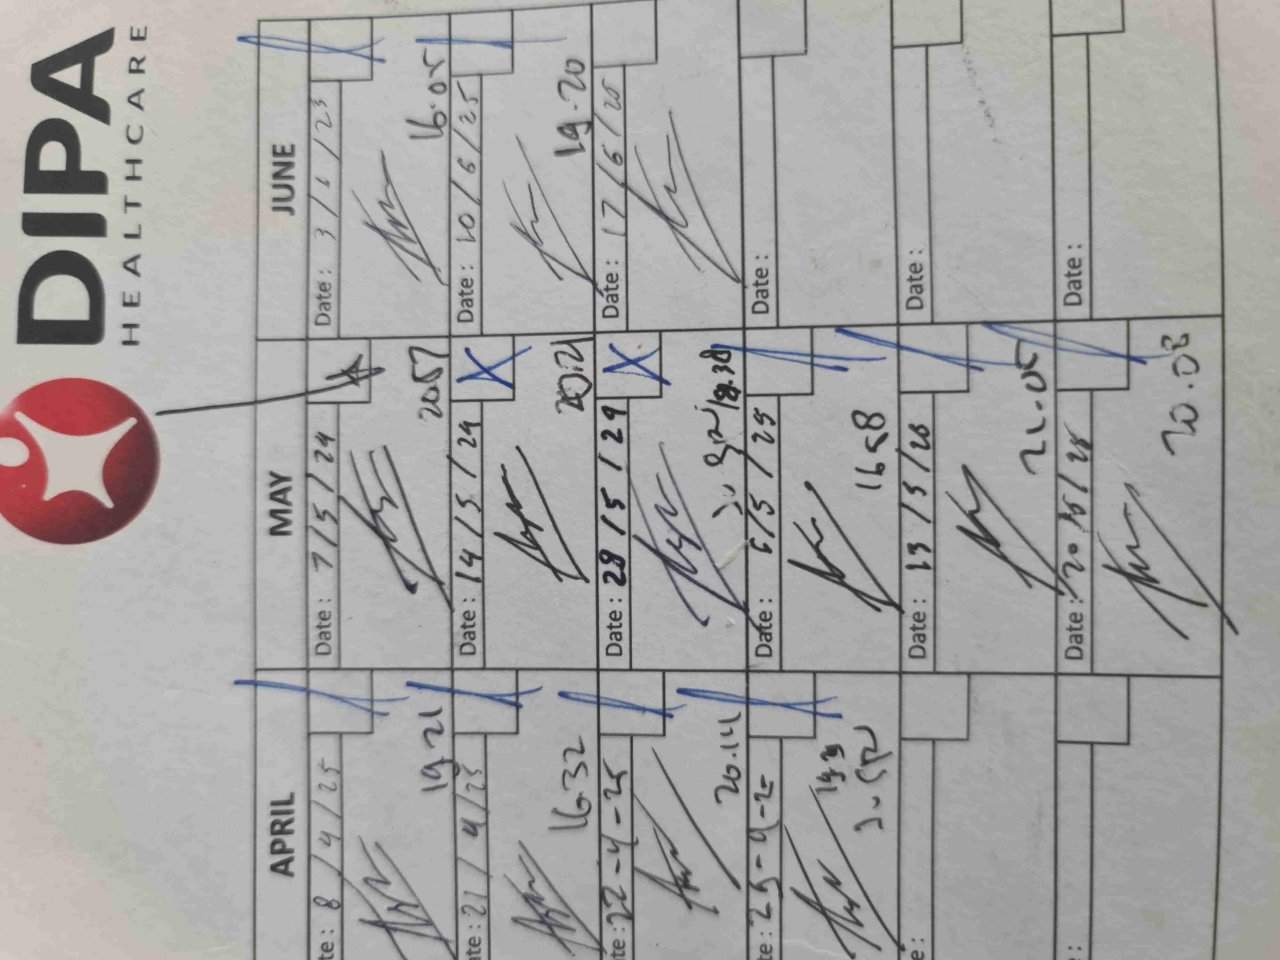 DIPA
HEALTHCARE
APRIL
te: 8/4/25
19.21
te: 21/4/25
16.32
te: 22-4-25
20.14
te: 29-4-25
e:
:
MAY
Date: 7/5/24
20.57
Date: 14/5/24
20.21
Date: 28/5/24
18.38
Date: 6/5/25
16.58
Date: 13/5/25
21.05
Date: 20/5/25
20.08
JUNE
Date: 3/6/25
16.05
Date: 10/6/25
19.20
Date: 17/6/25
Date:
Date:
Date: